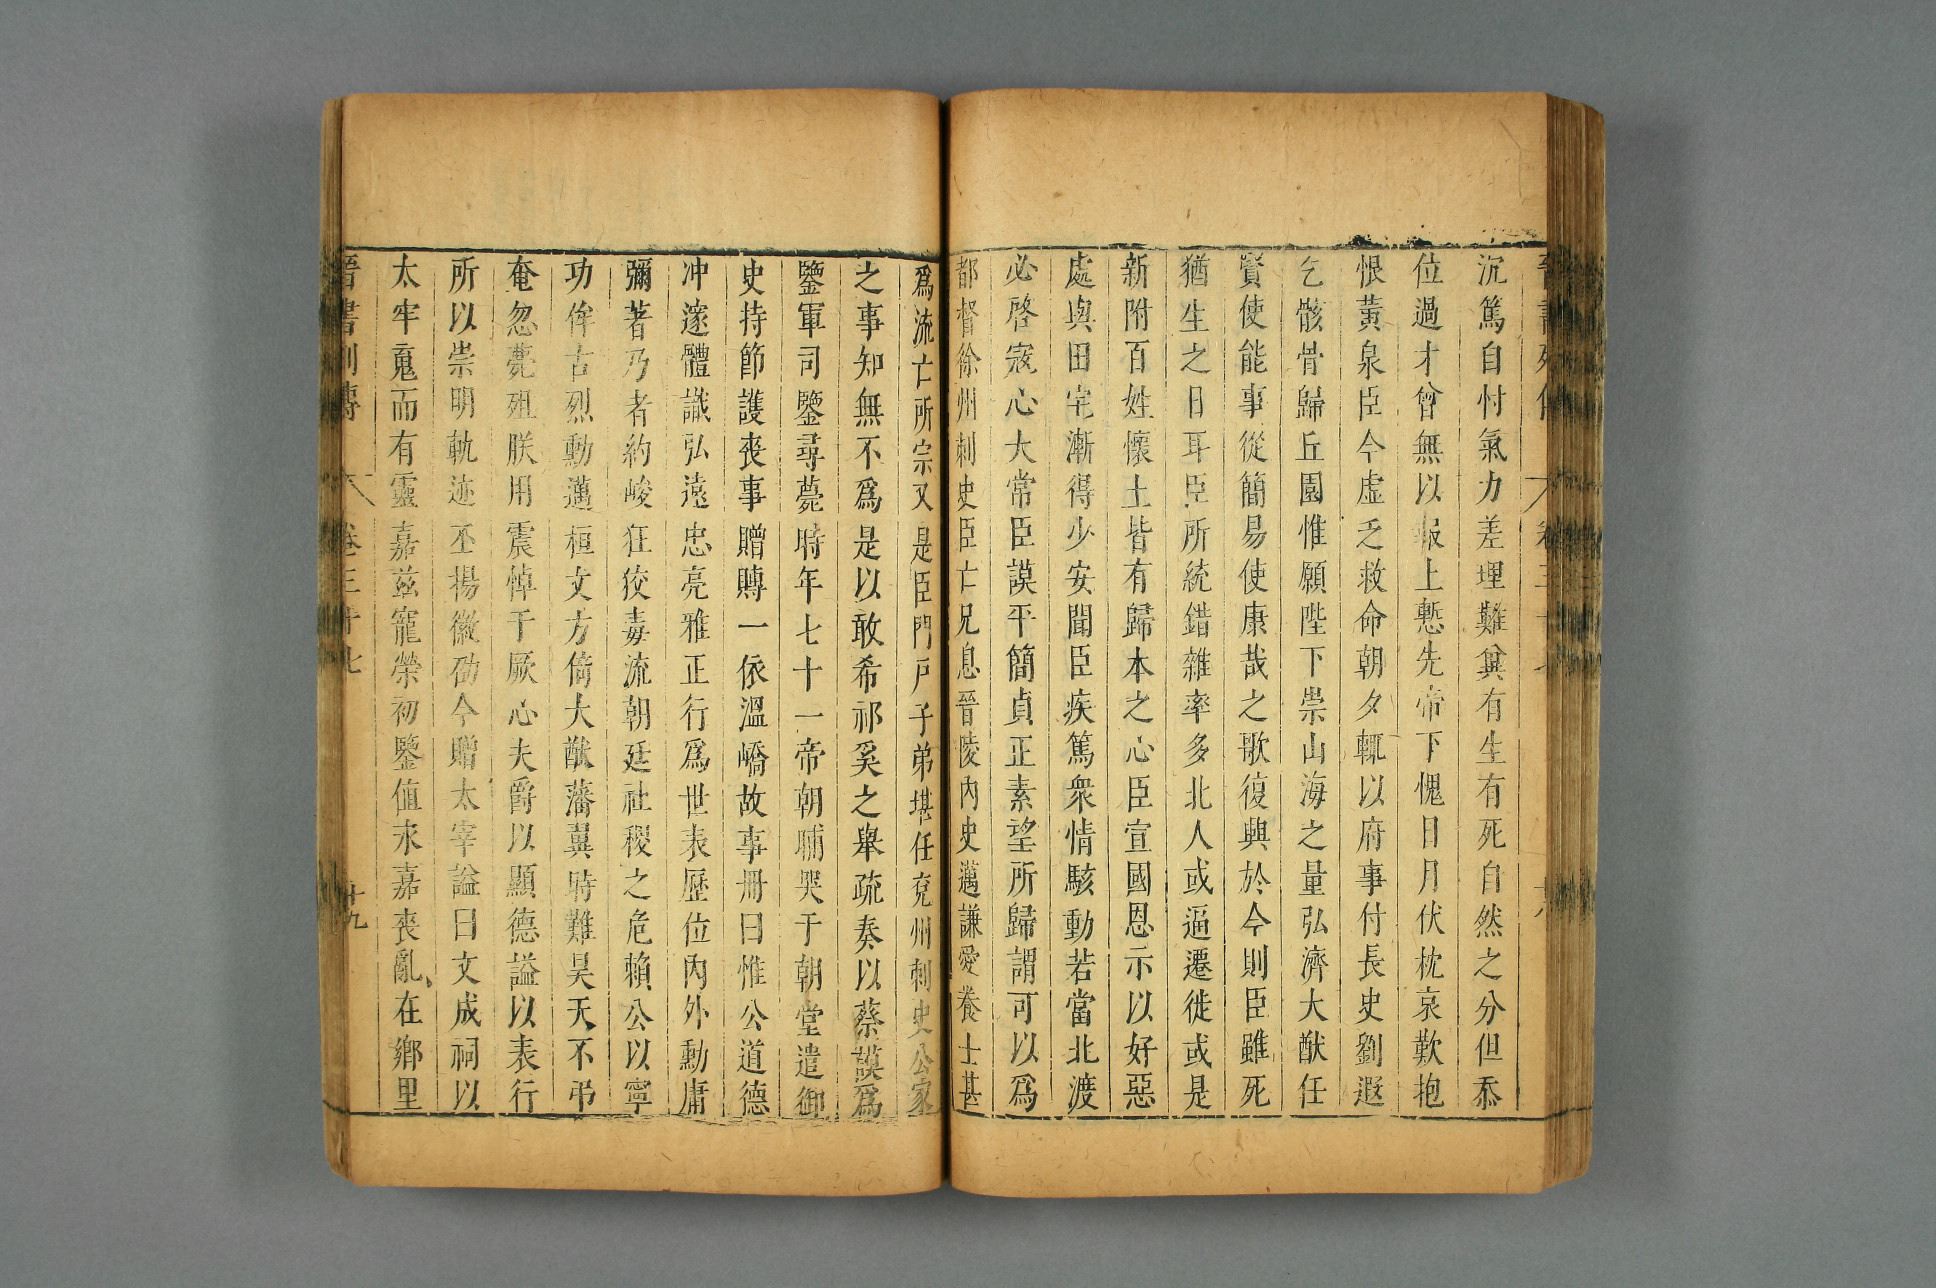 沉篤自忖氣力差埋難兾有生有死自然之分但忝
位過才曾無以報上慙先帝下愧日月伏枕哀歎抱
恨黃泉臣今虛乏救命朝夕輒以府事付長史劉遐
乞骸骨歸丘園惟願陛下崇山海之量弘濟大猷任
賢使能事從簡易使康哉之歌復興於今則臣雖死
猶生之日耳臣所統錯雜率多北人或逼遷徙或是
新附百姓懷土皆有歸本之心臣宣國恩示以好惡
處與田宅漸得少安聞臣疾篤衆情駭動若當北渡
必啓寇心大常臣謨平簡貞正素望所歸謂可以爲
都督徐州刺史臣亡兄息晉陵內史邁謙愛養士甚
爲流亡所宗又是臣門戶子弟堪任兗州刺史公家
之事知無不爲是以敢希祁奚之舉疏奏以蔡謨爲
鑒軍司鑒尋薨時年七十一帝朝晡哭于朝堂遣御
史持節護喪事贈賻一依溫嶠故事冊曰惟公道德
冲邃體識弘遠忠亮雅正行爲世表歷位內外勳庸
彌著乃者約峻狂狡毒流朝廷社稷之危賴公以寧
功侔古烈勳邁桓文方倚大猷藩翼時難昊天不弔
奄忽薨殂朕用震悼于厥心夫爵以顯德謚以表行
所以崇明軌迹丕揚徽劭今贈太宰謚曰文成祠以
太牢䰟而有靈嘉茲寵榮初鑒值永嘉喪亂在鄉里
晉書列傳 卷三十七 十九